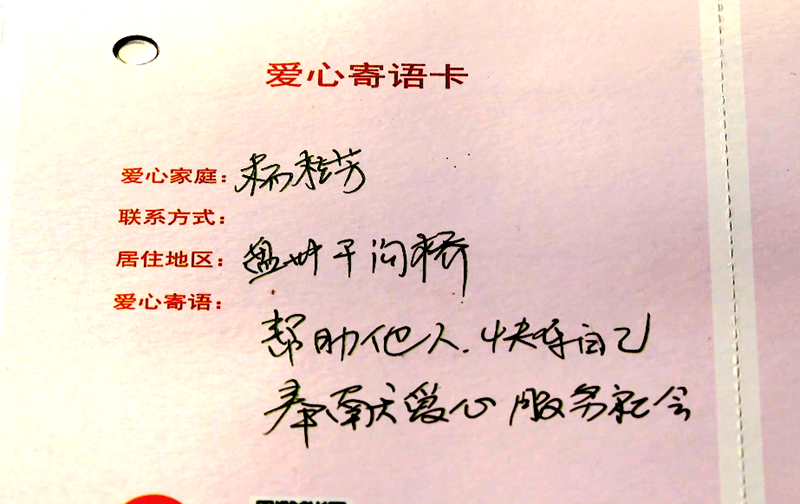 爱心寄语卡
爱心家庭：杨桂芳
联系方式：
居住地区：盘叶子沟桥
爱心寄语：
帮助他人.快乐自己
奉献爱心 服务社会